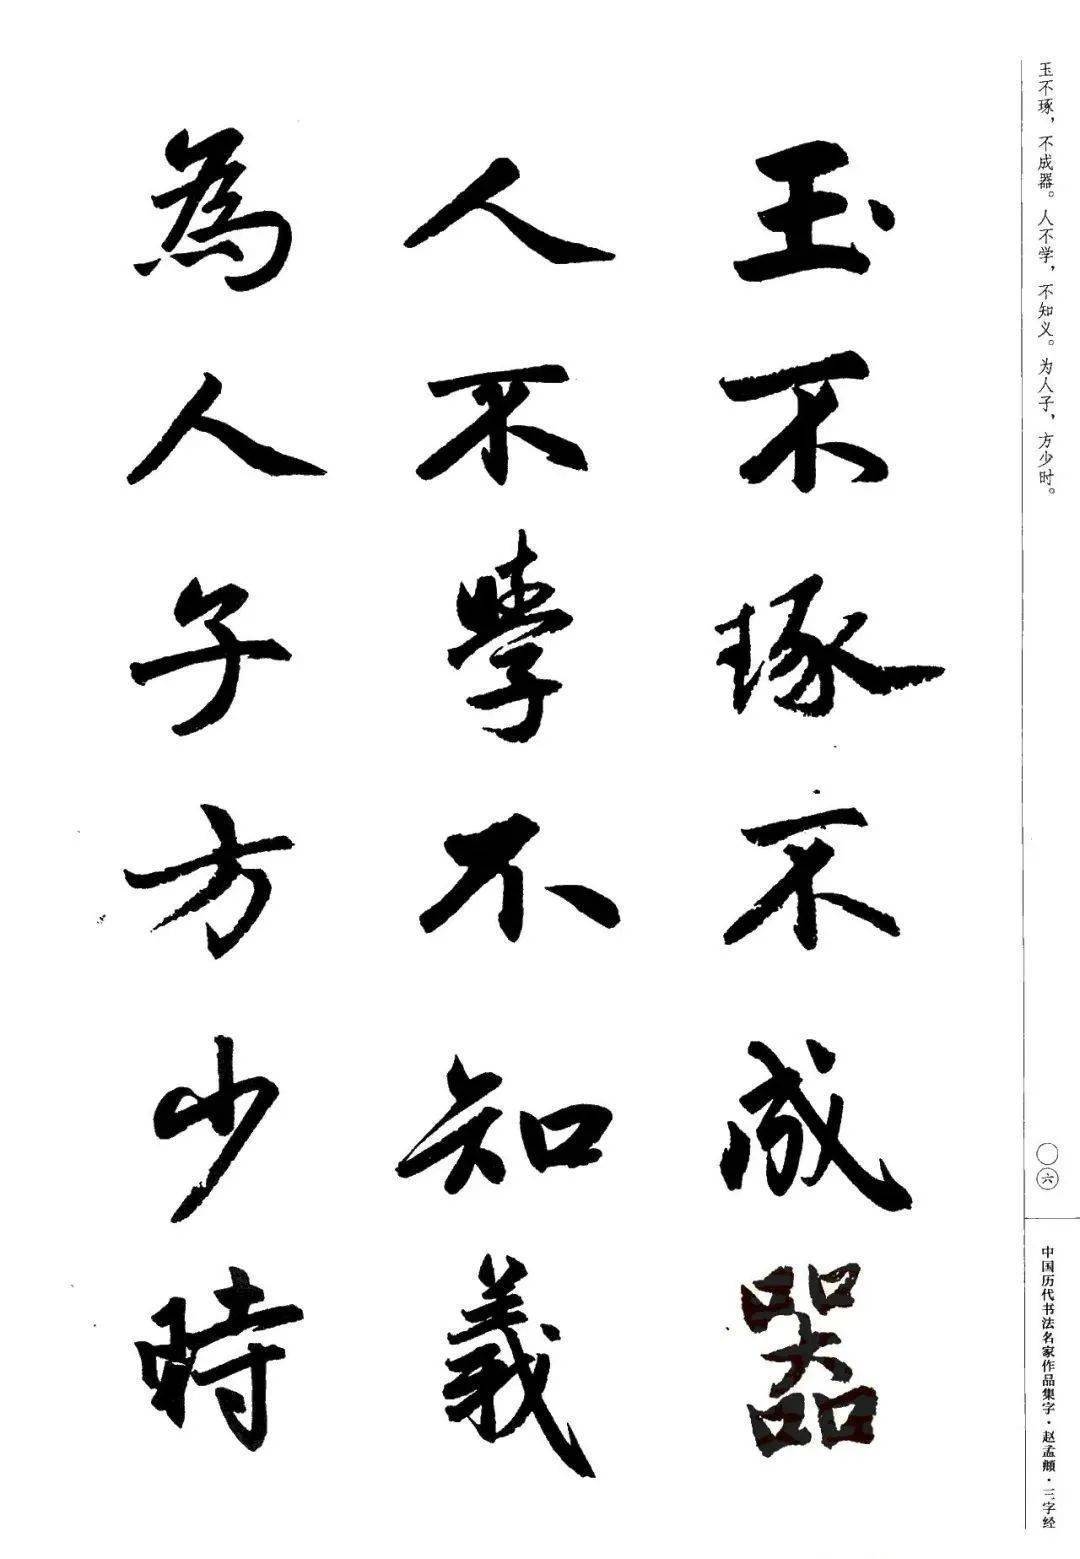 玉不琢，不成器。人不学，不知义。为人子，方少时。
玉不琢不成器
人不學不知義
為人子方少時
〇六
中国历代书法名家作品集字·赵孟頫·三字经